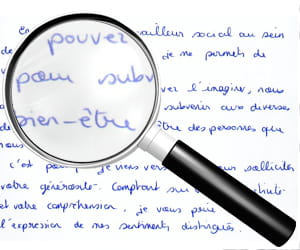 En
pouvez
availleur social au sein
de
je me permets de
pour subv
vez l'imaginer, nous
subvenir aux diverses
bien-être
être des personnes que
nous
c'est pour je viens vers solliciter
votre générosité. Comptant sur
et votre compréhension, je vous prie
l'expression de mes sentiments distingués.